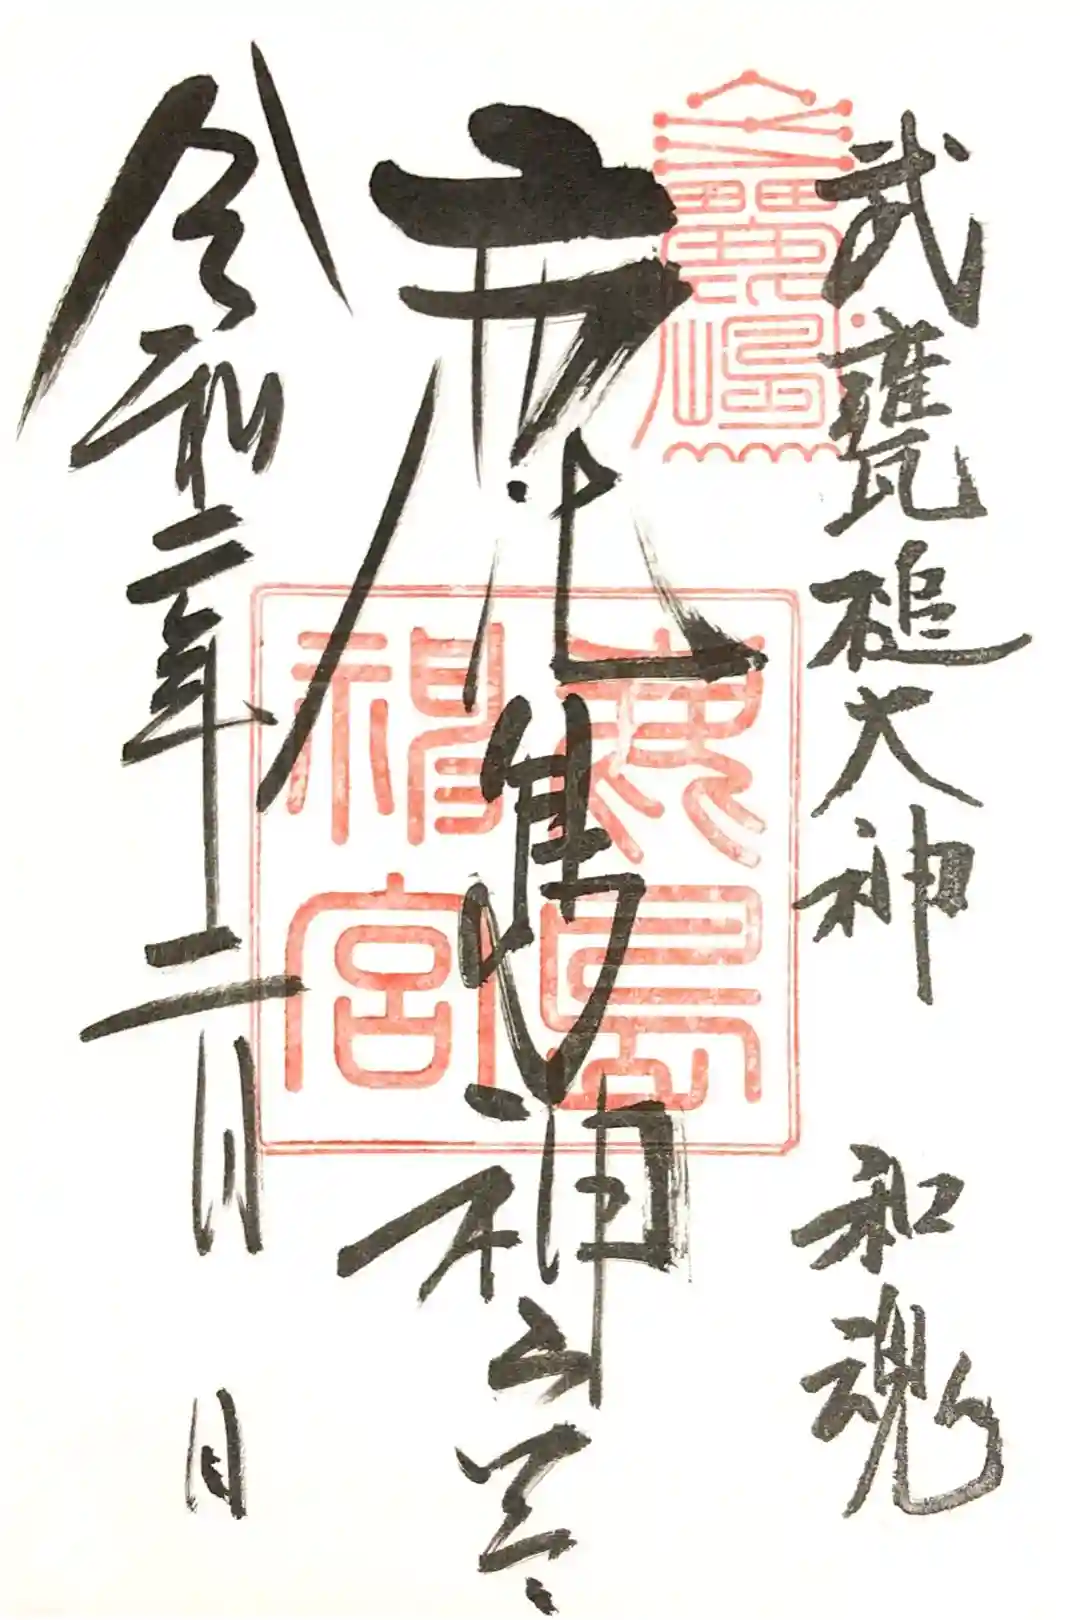 武甕槌大神 和魂
鹿島神宮
鹿島
神宮
令和二年二月 日